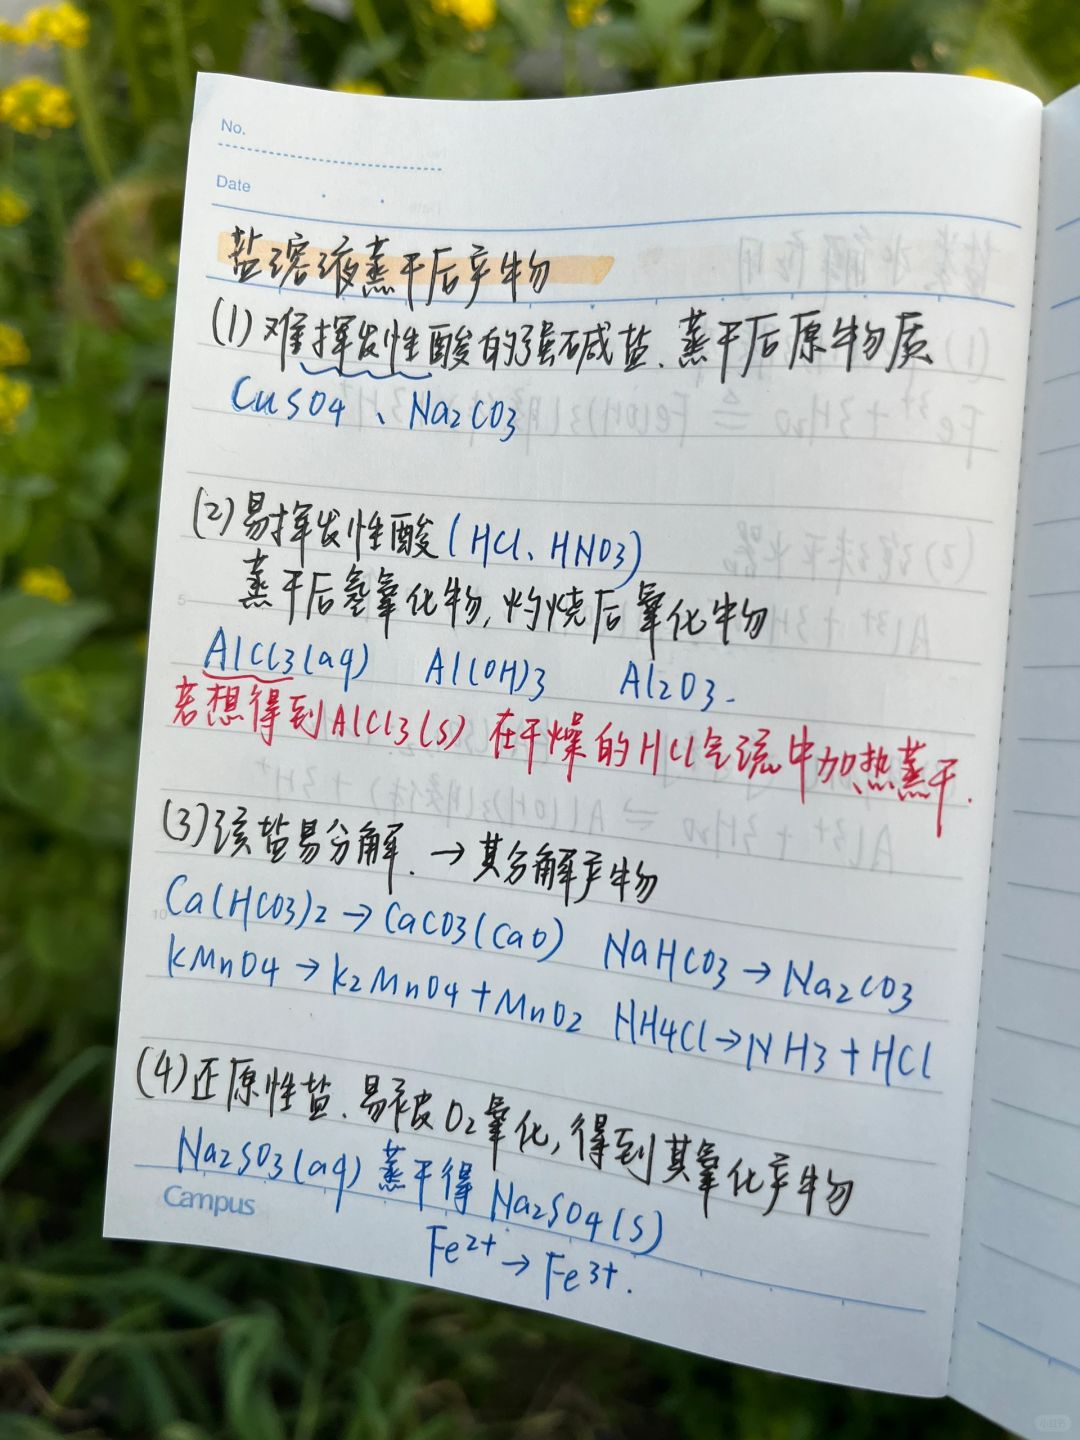 No.
Date
盐溶液蒸干后产物
(1)难挥发性酸的强碱盐、蒸干后原物质
CuSO4、Na2CO3
(2)易挥发性酸(HCl、HNO3)
蒸干后氢氧化物,灼烧后氧化物
AlCl3(aq) Al(OH)3 Al2O3.
若想得到AlCl3(s)在干燥的HCl气流中加热蒸干.
(3)该盐易分解.→其分解产物
Ca(HCO3)2→CaCO3(CaO) NaHCO3→Na2CO3
KMnO4→K2MnO4+MnO2 HH4Cl→NH3+HCl
(4)还原性盐、易被O2氧化,得到其氧化产物
Na2SO3(aq)蒸干得Na2SO4(s)
Campus
Fe2+→Fe3+.